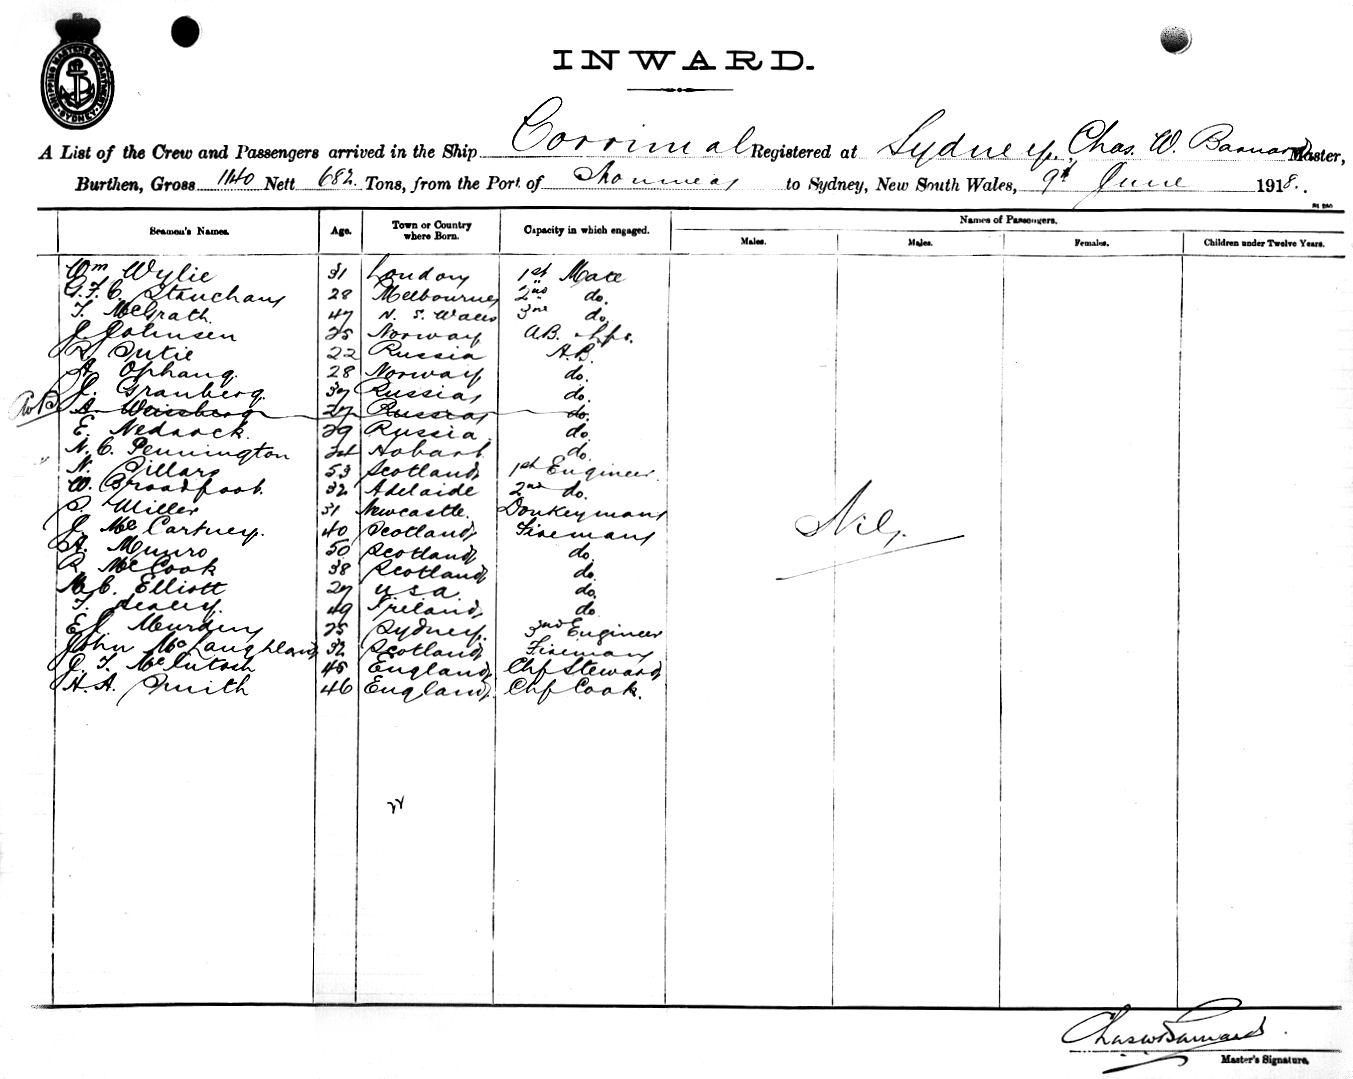 SHIPPING MASTER'S DEPARTMENT SYDNEY
INWARD.
A List of the Crew and Passengers arrived in the Ship Corrimal Registered at Sydney, Chas. W. Barnard Master,
Burthen, Gross 1140 Nett 682. Tons, from the Port of to Sydney, New South Wales, 9th June 1918.
Seamen's Names. Age. Town or Country where Born. Capacity in which engaged. Names of Passengers.
Males. Males. Females. Children under Twelve Years.
Wm Wylie 31 London 1st Mate
G. F. C. 28 Melbourne 2nd do.
T. McGrath. 47 N. S. Wales 3rd do.
J. Johnsen 25 Norway AB.
22 Russia A.B.
A. Ophang. 28 Norway do.
J. Granberg. 37 Russia do.
A. Weissberg 27 Russia do.
E. Nedrock. 29 Russia. do.
N. C. Pennington 24 Hobart do.
N. Pillars 53 Scotland 1st Engineer.
W. Broadfoot. 32 Adelaide 2nd do.
S. Miller 31 Newcastle. Donkeyman
J. McCartney. 40 Scotland Fireman
A. Munro 50 Scotland do.
R. McCook 38 Scotland do.
M. C. Elliott 27 U S A. do.
T. Sealey. 49 Ireland do
E J. 25 Sydney. 3rd Engineer
John McLaughland 32 Scotland Fireman
J. T. McIntosh 45 England Chf Steward
H. A. Smith 46 England. Chf Cook.
Nil.
Chas W Barnard.
Master's Signature.